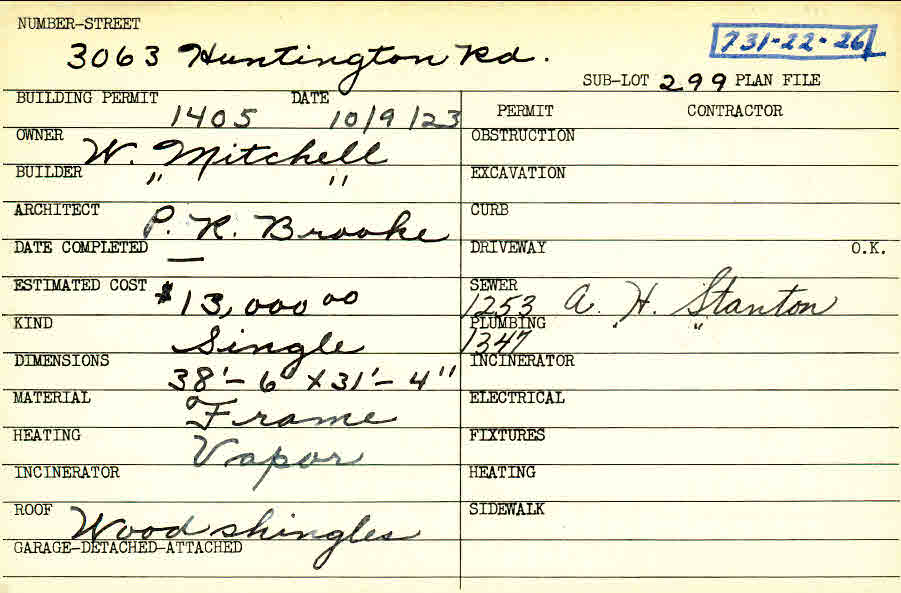 NUMBER-STREET
3063 Huntington Rd.
731-22-26
SUB-LOT 299 PLAN FILE
BUILDING PERMIT 1405 DATE 10/9/23
PERMIT CONTRACTOR
OWNER W. Mitchell
OBSTRUCTION
BUILDER " "
EXCAVATION
ARCHITECT P. R. Brooke
CURB
DATE COMPLETED —
DRIVEWAY O.K.
ESTIMATED COST $13,000 00
SEWER 1253 A. H. Stanton
KIND Single
PLUMBING 1347 " "
DIMENSIONS 38'-6" X 31'-4"
INCINERATOR
MATERIAL Frame
ELECTRICAL
HEATING Vapor
FIXTURES
INCINERATOR
HEATING
ROOF Wood shingles
SIDEWALK
GARAGE-DETACHED-ATTACHED